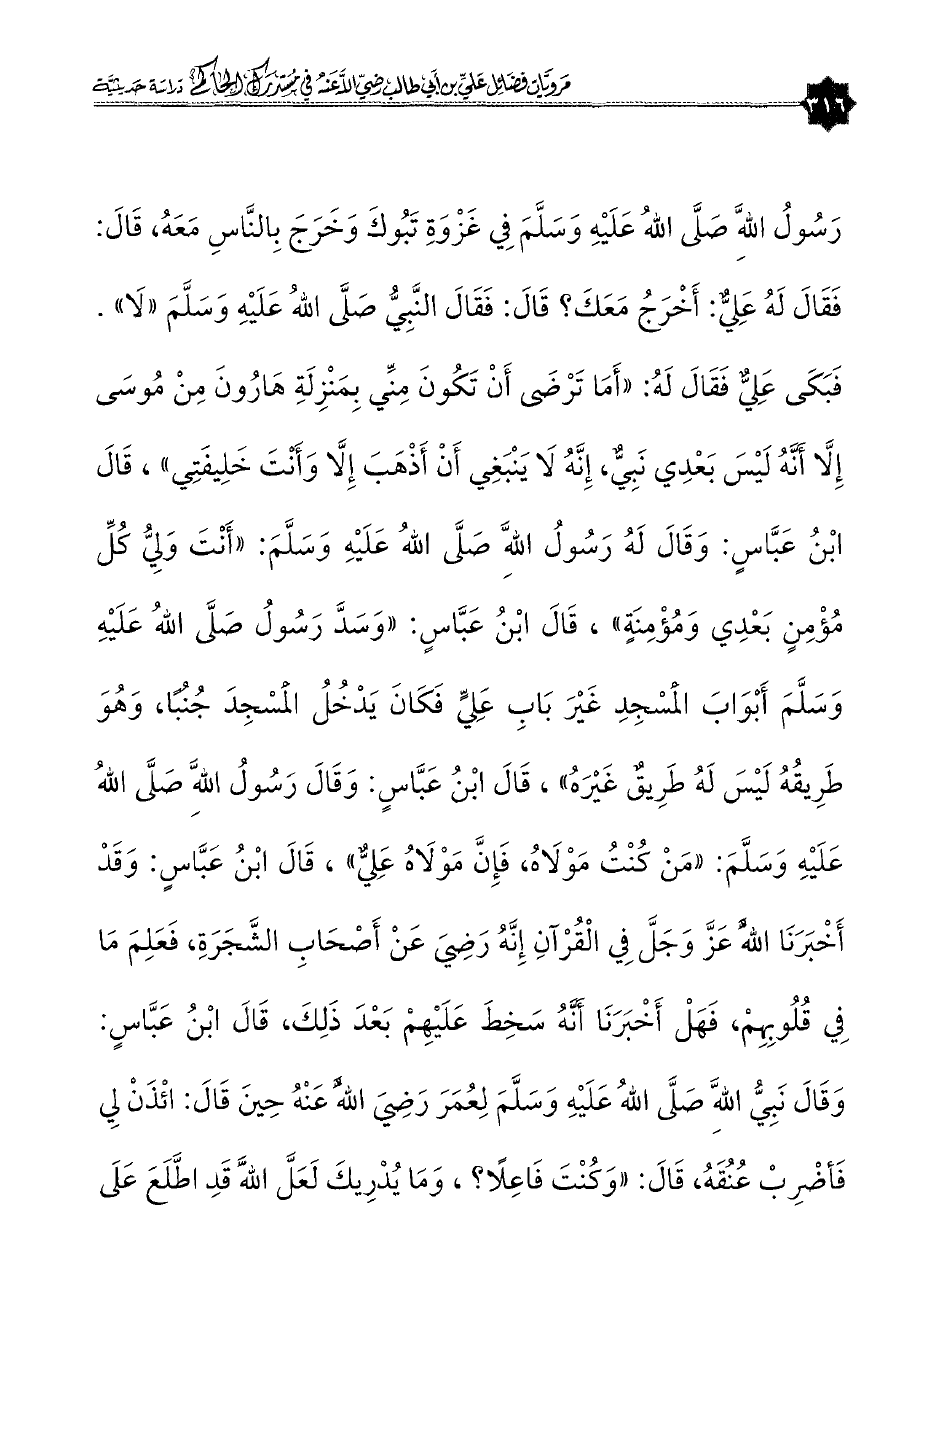 مرويات فضائل علي بن أبي طالب رضي الله عنه في مستدرك الحاكم دراسة حديثية
٣١٦
رَسُولُ اللهِ صَلَّى اللهُ عَلَيْهِ وَسَلَّمَ فِي غَزْوَةِ تَبُوكَ وَخَرَجَ بِالنَّاسِ مَعَهُ، قَالَ:
فَقَالَ لَهُ عَلِيٌّ: أَخْرُجُ مَعَكَ؟ قَالَ: فَقَالَ النَّبِيُّ صَلَّى اللهُ عَلَيْهِ وَسَلَّمَ «لَا» .
فَبَكَى عَلِيٌّ فَقَالَ لَهُ: «أَمَا تَرْضَى أَنْ تَكُونَ مِنِّي بِمَنْزِلَةِ هَارُونَ مِنْ مُوسَى
إِلَّا أَنَّهُ لَيْسَ بَعْدِي نَبِيٌّ، إِنَّهُ لَا يَنْبَغِي أَنْ أَذْهَبَ إِلَّا وَأَنْتَ خَلِيفَتِي» ، قَالَ
ابْنُ عَبَّاسٍ: وَقَالَ لَهُ رَسُولُ اللهِ صَلَّى اللهُ عَلَيْهِ وَسَلَّمَ: «أَنْتَ وَلِيُّ كُلِّ
مُؤْمِنٍ بَعْدِي وَمُؤْمِنَةٍ» ، قَالَ ابْنُ عَبَّاسٍ: «وَسَدَّ رَسُولُ صَلَّى اللهُ عَلَيْهِ
وَسَلَّمَ أَبْوَابَ الْمَسْجِدِ غَيْرَ بَابِ عَلِيٍّ فَكَانَ يَدْخُلُ الْمَسْجِدَ جُنُبًا، وَهُوَ
طَرِيقُهُ لَيْسَ لَهُ طَرِيقٌ غَيْرَهُ» ، قَالَ ابْنُ عَبَّاسٍ: وَقَالَ رَسُولُ اللهِ صَلَّى اللهُ
عَلَيْهِ وَسَلَّمَ: «مَنْ كُنْتُ مَوْلَاهُ، فَإِنَّ مَوْلَاهُ عَلِيٌّ» ، قَالَ ابْنُ عَبَّاسٍ: وَقَدْ
أَخْبَرَنَا اللهُ عَزَّ وَجَلَّ فِي الْقُرْآنِ إِنَّهُ رَضِيَ عَنْ أَصْحَابِ الشَّجَرَةِ، فَعَلِمَ مَا
فِي قُلُوبِهِمْ، فَهَلْ أَخْبَرَنَا أَنَّهُ سَخِطَ عَلَيْهِمْ بَعْدَ ذَلِكَ، قَالَ ابْنُ عَبَّاسٍ:
وَقَالَ نَبِيُّ اللهِ صَلَّى اللهُ عَلَيْهِ وَسَلَّمَ لِعُمَرَ رَضِيَ اللهُ عَنْهُ حِينَ قَالَ: ائْذَنْ لِي
فَأَضْرِبْ عُنُقَهُ، قَالَ: «وَكُنْتَ فَاعِلًا؟ ، وَمَا يُدْرِيكَ لَعَلَّ اللهَ قَدِ اطَّلَعَ عَلَى